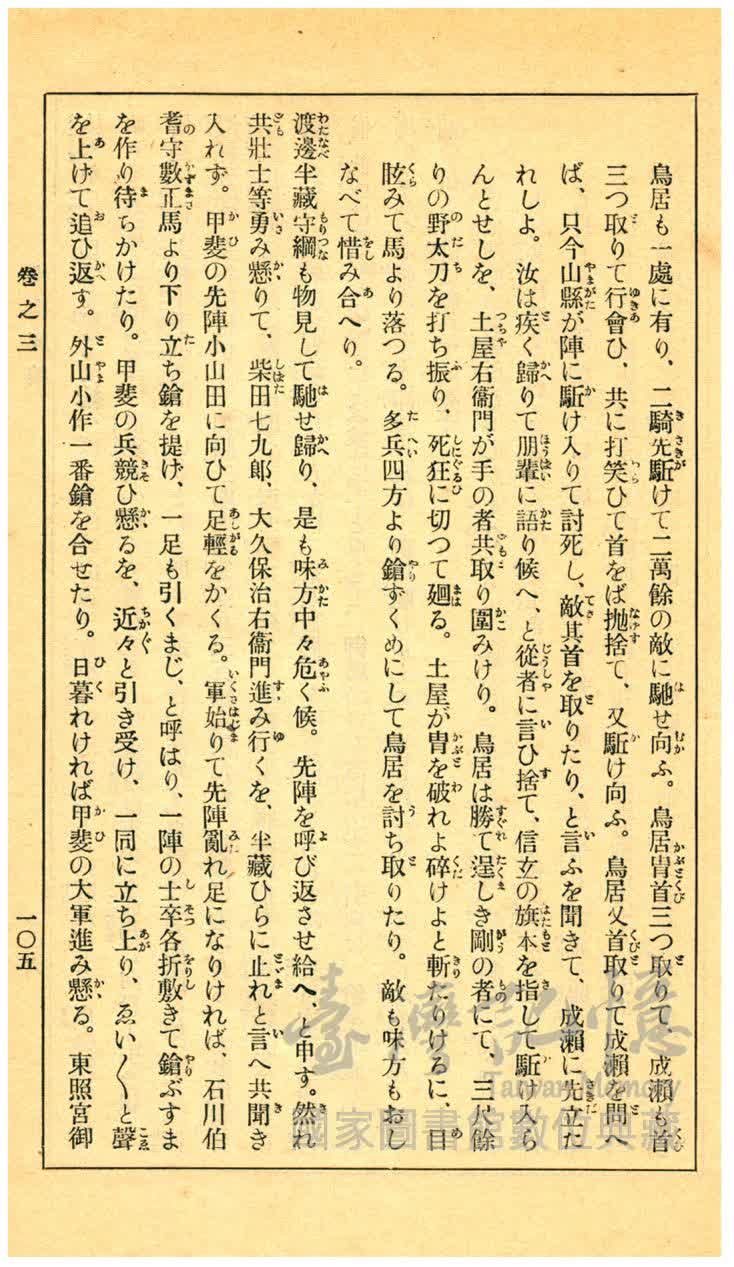 鳥居も一處に有り、二騎先駈けて二萬餘の敵に馳せ向ふ。鳥居冑首三つ取りて、成瀨も首
三つ取りて行會ひ、共に打笑ひて首をば抛捨て、又駈け向ふ。鳥居又首取りて成瀨を問へ
ば、只今山縣が陣に駈け入りて討死し、敵其首を取りたり、と言ふを聞きて、成瀨に先立た
れしよ。汝は疾く歸りて朋輩に語り候へ、と從者に言ひ捨て、信玄の旗本を指して駈け入ら
んとせしを、土屋右衞門が手の者共取り圍みけり。鳥居は勝て逞しき剛の者にて、三尺餘
りの野太刀を打ち振り、死狂に切つて廻る。土屋が冑を破れよ碎けよと斬たりけるに、目
眩みて馬より落つる。多兵四方より鎗ずくめにして鳥居を討ち取りたり。敵も味方もおし
なべて惜み合へり。
渡邊半藏守綱も物見して馳せ歸り、是も味方中々危く候。先陣を呼び返させ給へ、と申す。然れ
共壯士等勇み懸りて、柴田七九郎、大久保治右衞門進み行くを、半藏ひらに止れと言へ共聞き
入れず。甲斐の先陣小山田に向ひて足輕をかくる。軍始りて先陣亂れ足になりければ、石川伯
耆守數正馬より下り立ち鎗を提げ、一足も引くまじ、と呼はり、一陣の士卒各折敷きて鎗ぶすま
を作り待ちかけたり。甲斐の兵競ひ懸るを、近々と引き受け、一同に立ち上り、ゑい〱と聲
を上げて追ひ返す。外山小作一番鎗を合せたり。日暮れければ甲斐の大軍進み懸る。東照宮御
卷之三
一〇五
臺灣記憶
Taiwan Memory
國家圖書館數位典藏